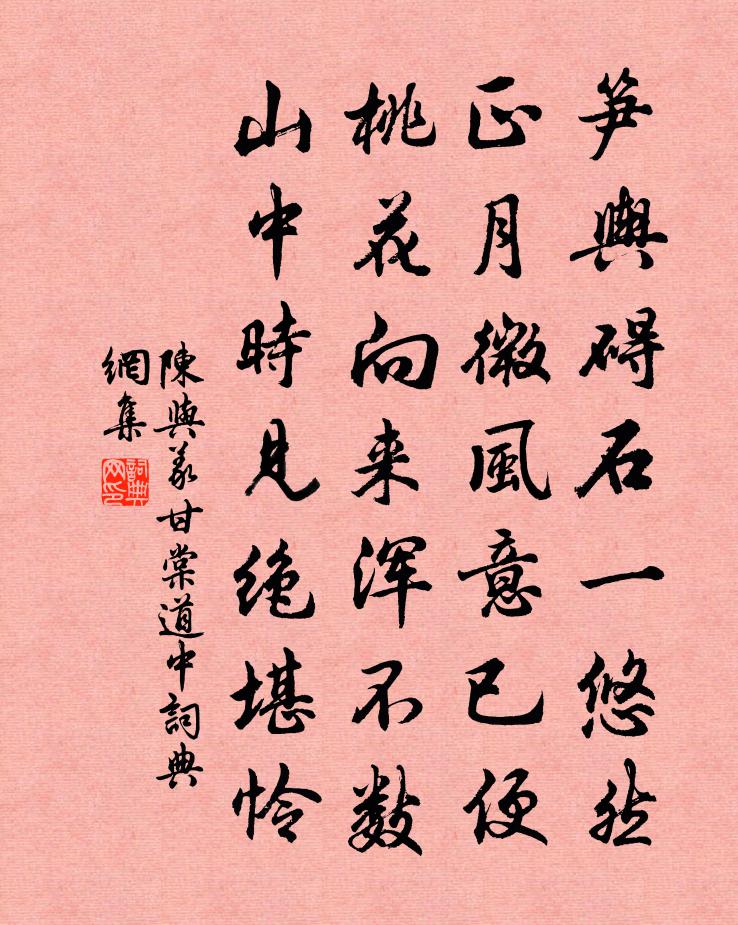 笋輿碍石一悠然
正月微風意已便
桃花向来渾不數
山中時見絶堪怜
陳與義甘棠道中詞典
網集
詞典
网印